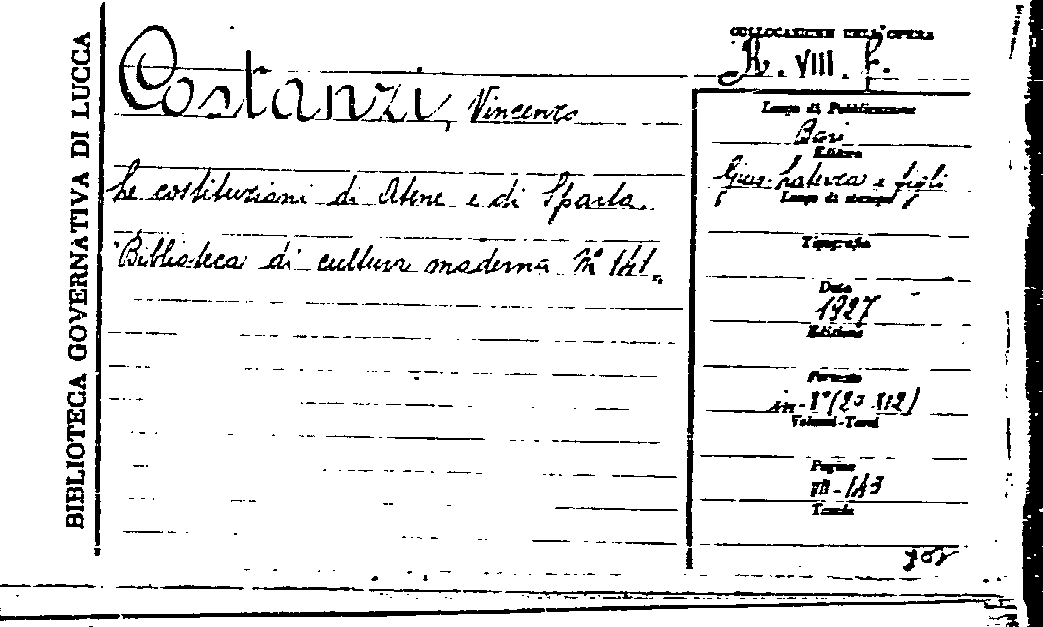 BIBLIOTECA GOVERNATIVA DI LUCCA
Costanzi, Vincenzo
Le costituzioni di Atene e di Sparta.
Biblioteca di cultura moderna Nº 141.
COLLOCAZIONE DELL'OPERA
R. VIII. F.
Luogo di Pubblicazione
Bari
Editore
Gius. Laterza e figli
Luogo di stampa
Tipografia
Data
1927
Edizione
Formato
in-8º (20 X12)
Volumi-Tomi
Pagine
VII-143
Tavole